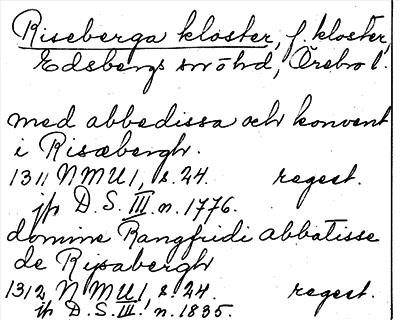 Riseberga kloster, f. kloster,
Edsbergs sn o hd, Örebro l.
med abbedissa och konvent
i Risæbergh.
1311 NMU 1, s. 24. regest.
jfr D. S. III n. 1776.
domine Rangfridi abbatisse
de Rysabergh
1312 NMU 1, s. 24. regest.
jfr D. S. III. n. 1835.